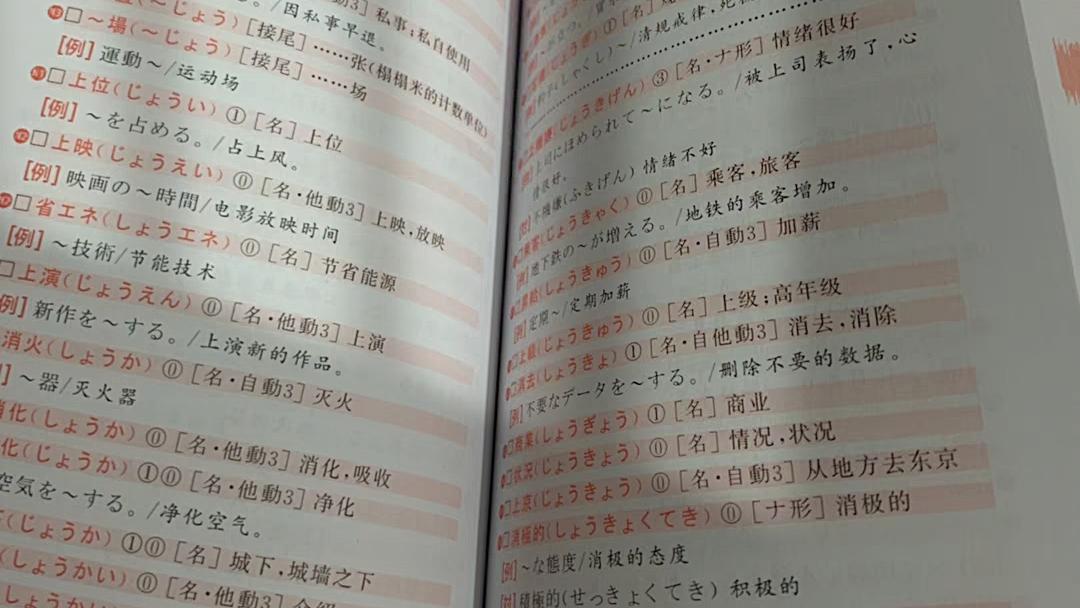 ／因私事早退。
私事；私自使用
[接尾]……张(榻榻米的计数单位)
□～場(～じょう)[接尾]……场
[例]運動～/运动场
□上位(じょうい)①[名]上位
[例]～を占める。/占上风。
□上映(じょうえい)⓪[名·他動3]上映,放映
[例]映画の～時間/电影放映时间
□省エネ(しょうエネ)⓪[名]节省能源
[例]～技術/节能技术
□上演(じょうえん)⓪[名·他動3]上演
[例]新作を～する。/上演新的作品。
消火(しょうか)⓪[名·自動3]灭火
～器/灭火器
消化(しょうか)⓪[名·他動3]消化,吸收
化(じょうか)①⓪[名·他動3]净化
空気を～する。/净化空气。
(じょうか)①⓪[名]城下,城墙之下
(しょうかい)⓪[名·他動3]
～/清规戒律,
(じょうきげん)③[名·ナ形]情绪很好
[例]上司にほめられて～になる。/被上司表扬了,心
情很好。
[対]不機嫌(ふきげん)情绪不好
□乗客(じょうきゃく)⓪[名]乘客,旅客
[例]地下鉄の～が増える。/地铁的乘客增加。
□昇給(しょうきゅう)⓪[名·自動3]加薪
[例]定期～/定期加薪
□上級(じょうきゅう)⓪[名]上级；高年级
□消去(しょうきょ)①[名·自他動3]消去,消除
[例]不要なデータを～する。/删除不要的数据。
□商業(しょうぎょう)①[名]商业
□状況(じょうきょう)⓪[名]情况,状况
□上京(じょうきょう)⓪[名·自動3]从地方去东京
□消極的(しょうきょくてき)⓪[ナ形]消极的
[例]～な態度/消极的态度
[対]積極的(せっきょくてき)积极的